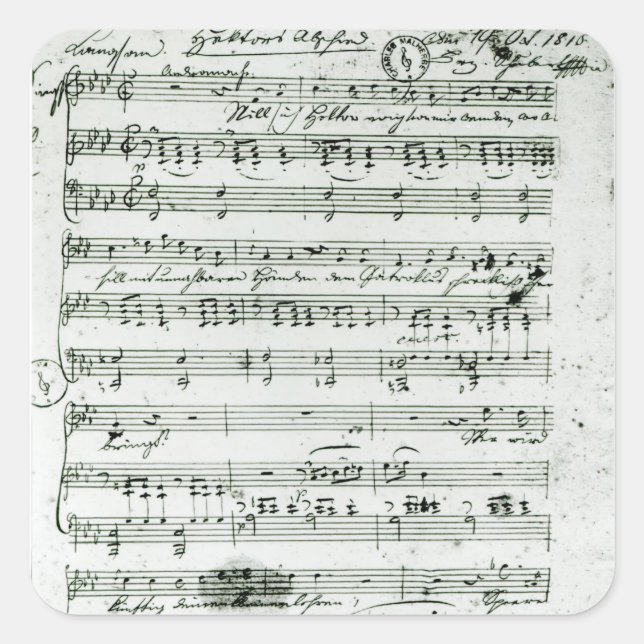 Langsam. Hektors Abschied 19. Oct. 1815
Franz Schubert
CHARLES MALHERBE
Andromache.
Will sich Hektor ewig von mir wenden, wo A-
p
chill mit unnahbaren Händen dem Patroklus schrecklich Opfer
cresc.
bringt? Wer wird
p
künftig deinen Kleinen lehren, Speere